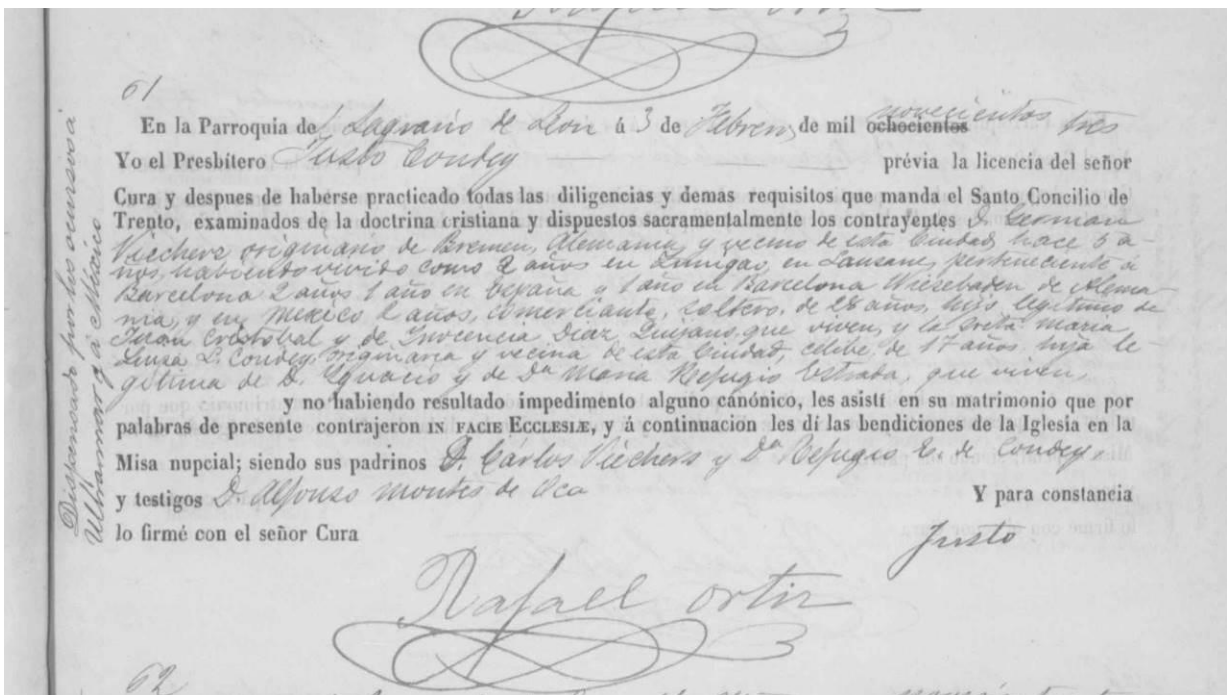 Rafael Ortiz
61
En la Parroquia del Sagrario de Leon á 3 de Febrero, de mil ochocientos novecientos tres
Yo el Presbítero Justo Condey prévia la licencia del señor
Cura y despues de haberse practicado todas las diligencias y demas requisitos que manda el Santo Concilio de
Trento, examinados de la doctrina cristiana y dispuestos sacramentalmente los contrayentes D. German
Viechers originario de Bremen, Alemania, y vecino de esta Ciudad, hace 5 a-
ños, habiendo vivido como 2 años en en Lausane, perteneciente á
Barcelona 2 años 1 año en España y 1 año en Barcelona Wiesebaden de Alema-
nia, y en Mexico 2 años, comerciante, soltero, de 28 años, hijo legitimo de
Juan Cristobal y de Inocencia Diaz Quijano, que viven, y la Srita Maria
Luisa L. Condey, originaria y vecina de esta Ciudad, célibe, de 17 años, hija le-
gitima de D. Ignacio y de Da Maria Refugio Estrada, que viven,
y no habiendo resultado impedimento alguno canónico, les asistí en su matrimonio que por
palabras de presente contrajeron IN FACIE ECCLESIÆ, y á continuacion les dí las bendiciones de la Iglesia en la
Misa nupcial; siendo sus padrinos D. Cárlos Viechers y Da Refugio E. de Condey,
y testigos D. Alfonso Montes de Oca Y para constancia
lo firmé con el señor Cura Justo
Rafael Ortiz
62
Dispensado por los cursos á
Ultramar y á México